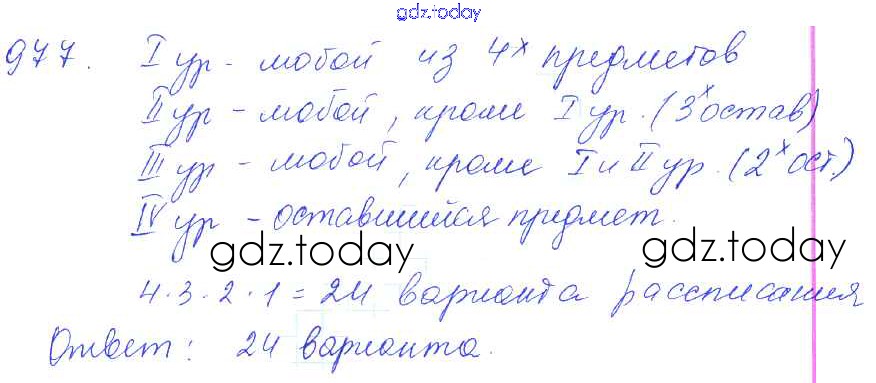 gdz.today
977. I ур - любой из 4х предметов
II ур - любой, кроме I ур. (3х остав)
III ур - любой, кроме I и II ур. (2х ост.)
IV ур - оставшийся предмет.
gdz.today gdz.today
4·3·2·1=24 варианта рассписания
Ответ: 24 варианта.